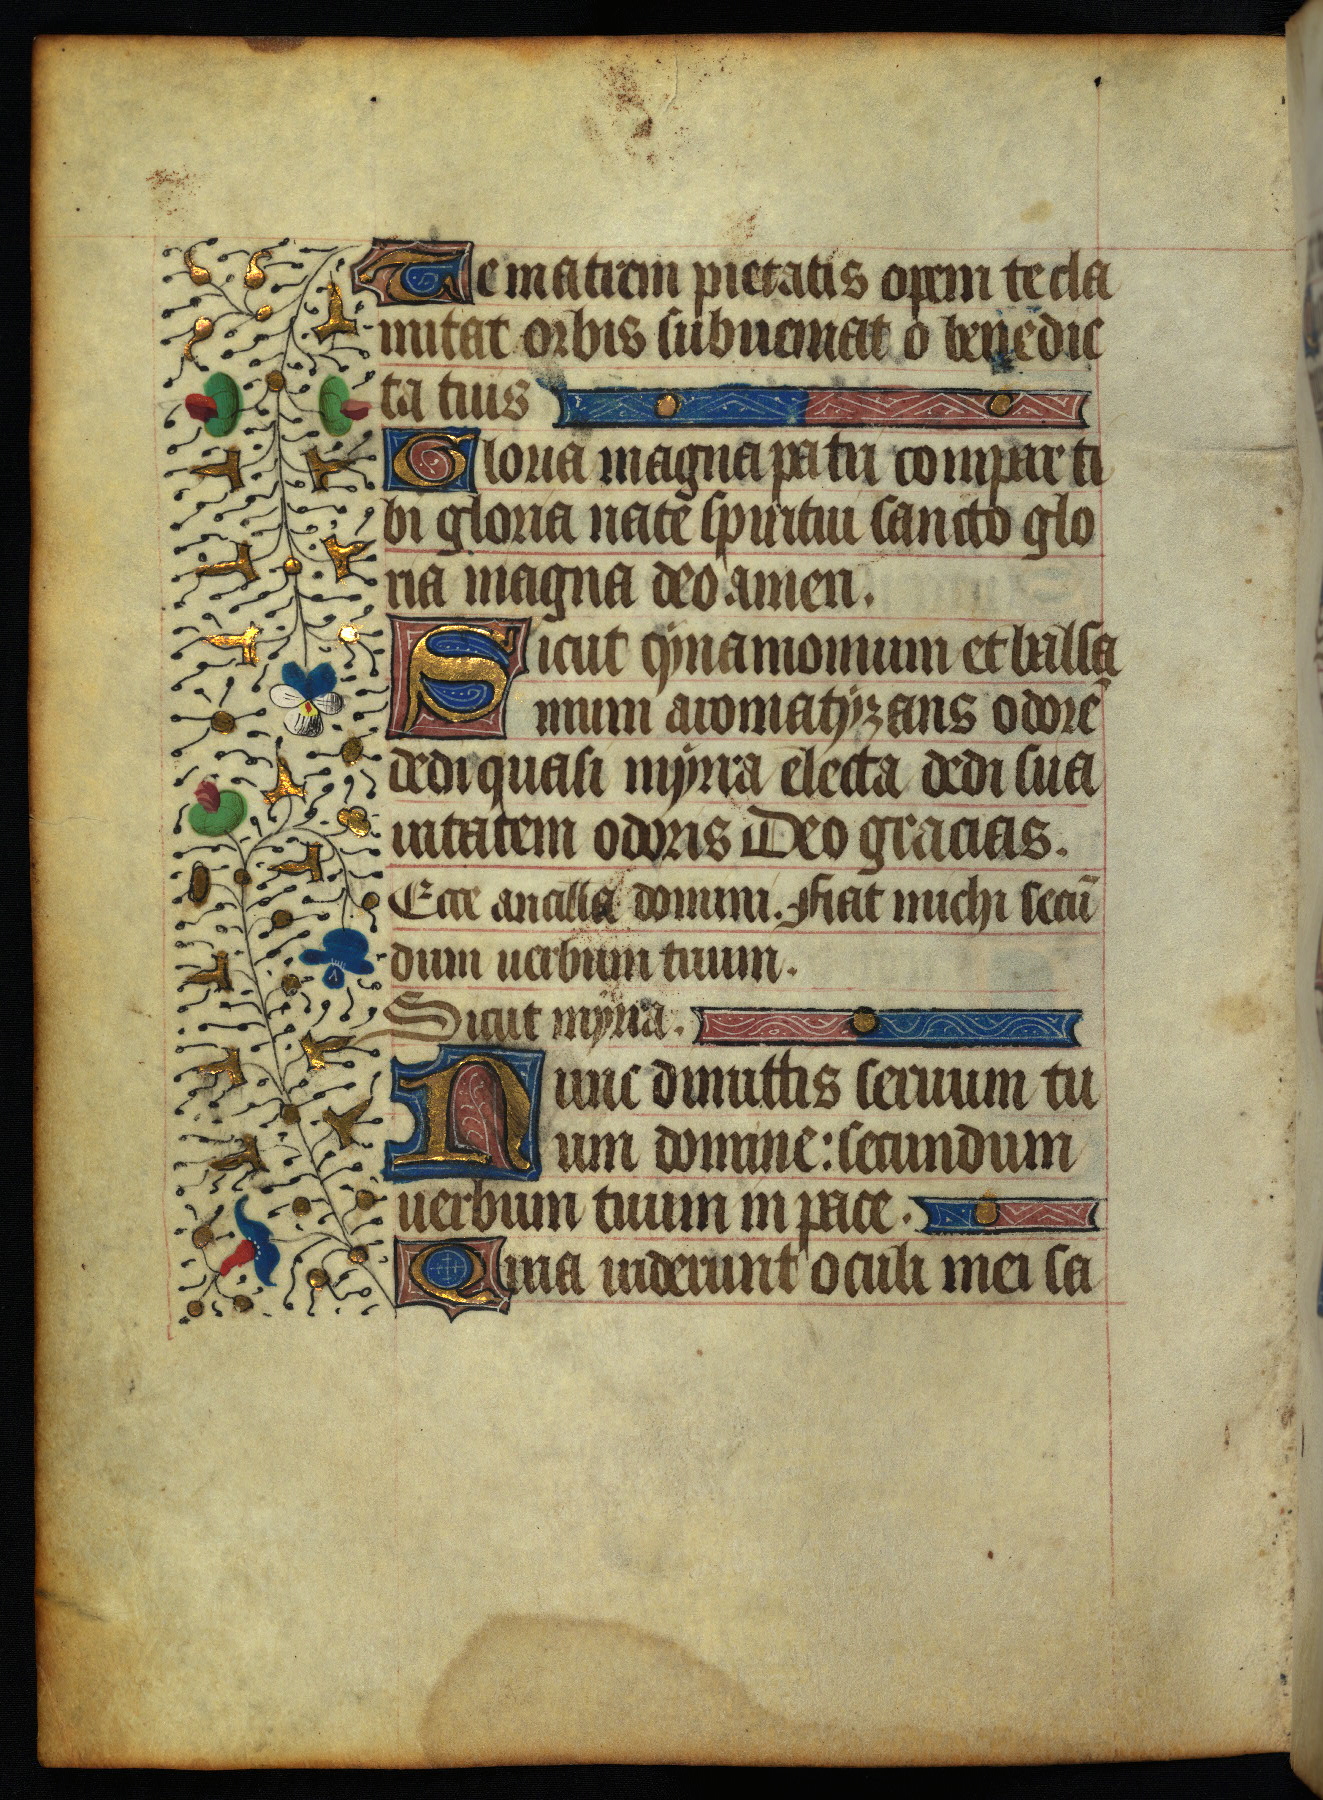 Te matrem pietatis opem te cla
mitat orbis subueniat o benedic
ta tuis
Gloria magna patri compar ti
bi gloria nate spiritui sancto glo
ria magna deo amen.
Sicut cynamomum et balsa
mum aromatyzans odorē
dedi quasi myrra electa dedi sua
uitatem odoris Deo gracias.
Ecce ancilla domini. Fiat michi secū
dum uerbum tuum.
Sicut myrra.
Nunc dimittis seruum tu
um domine: secundum
uerbum tuum in pace.
Quia uiderunt oculi mei sa